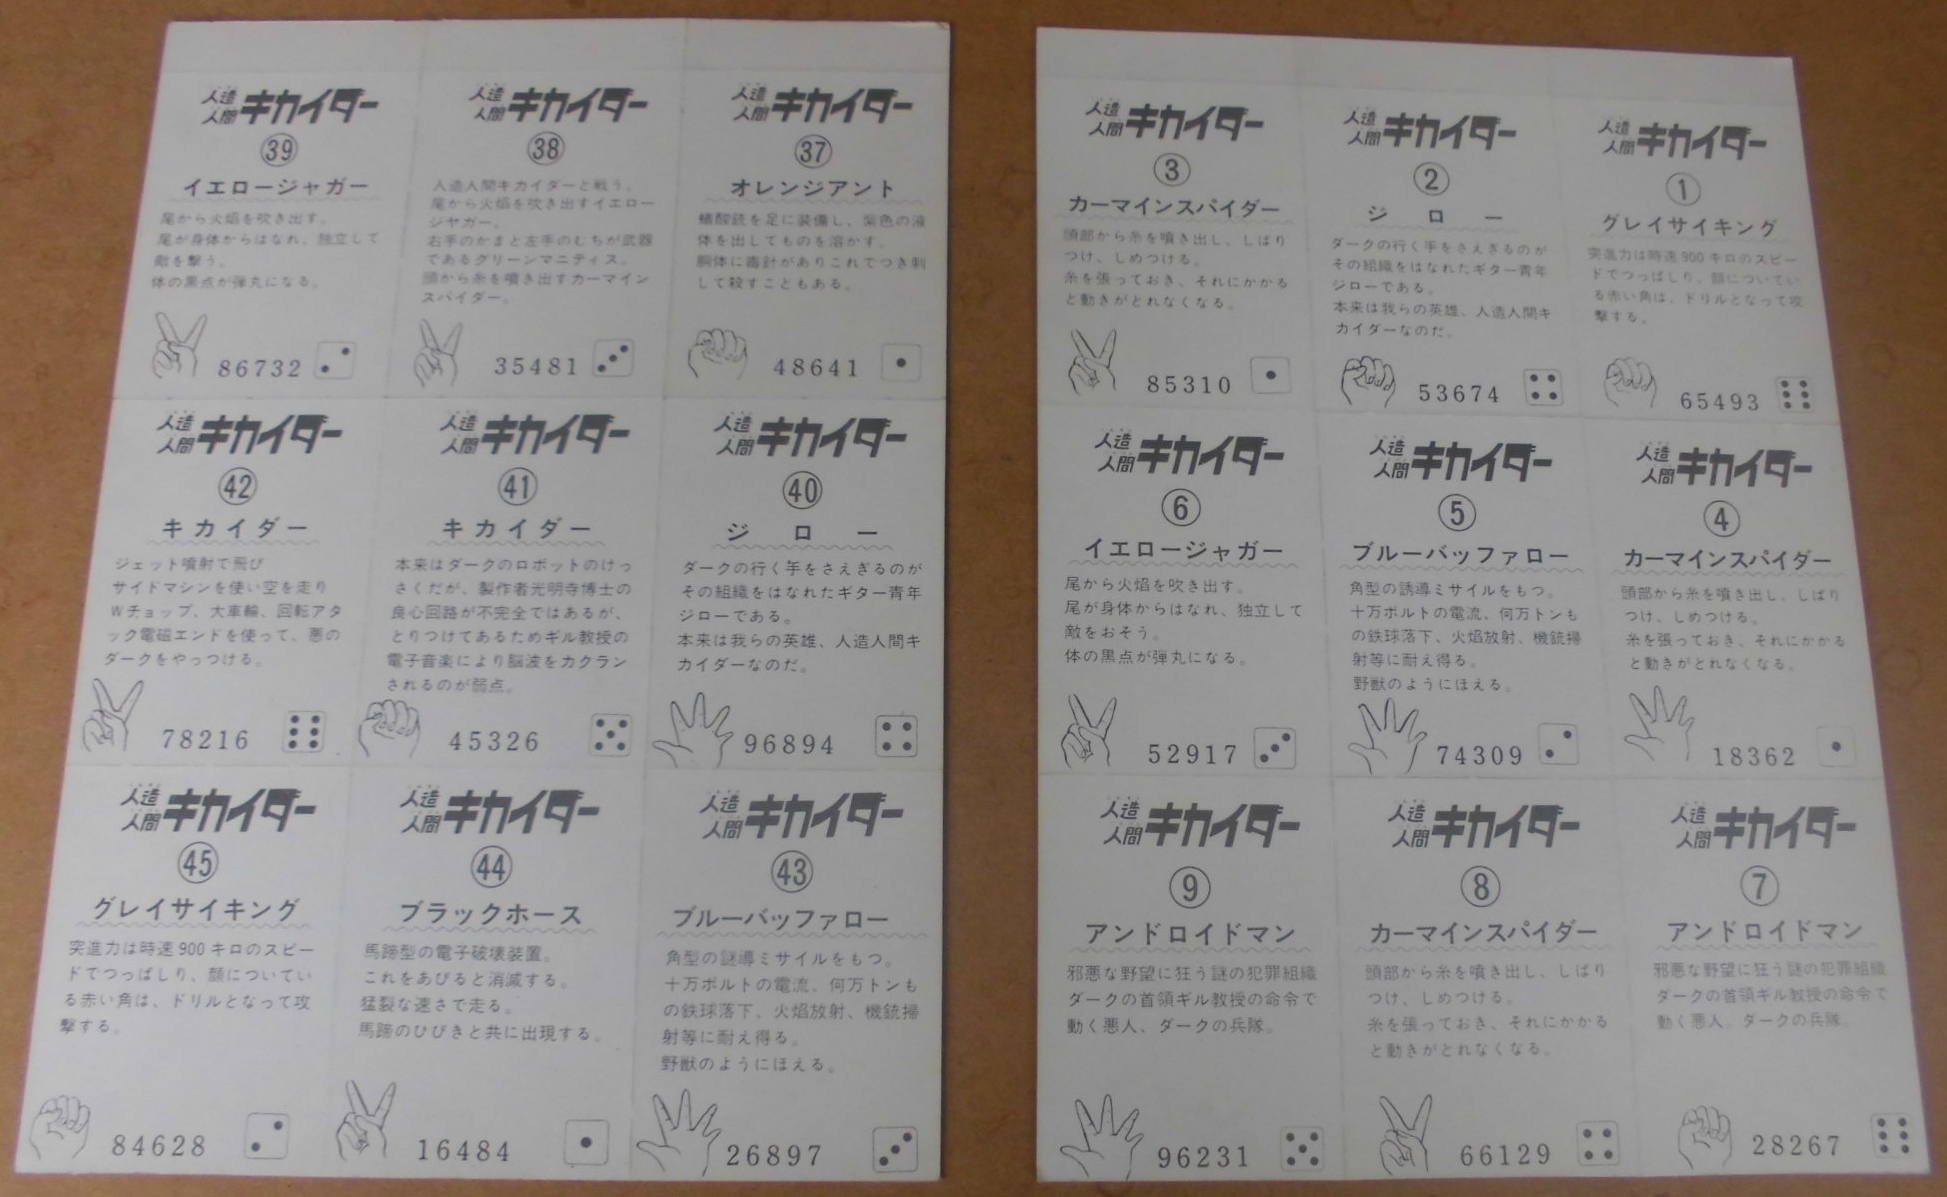 人造人間 キカイダー
39
イエロージャガー
尾から火焔を吹き出す。
尾が身体からはなれ、独立して
敵を撃う。
体の黒点が弾丸になる。
86732
人造人間 キカイダー
38
人造人間キカイダーと戦う。
尾から火焔を吹き出すイエロー
ジャガー。
右手のかまと左手のむちが武器
であるグリーンマニティス。
頭から糸を噴き出すカーマイン
スパイダー。
35481
人造人間 キカイダー
37
オレンジアント
蟻酸銃を足に装備し、紫色の液
体を出してものを溶かす。
胴体に毒針がありこれでつき刺
して殺すこともある。
48641
人造人間 キカイダー
42
キカイダー
ジェット噴射で飛び
サイドマシンを使い空を走り
Wチョップ、大車輪、回転アタ
ック電磁エンドを使って、悪の
ダークをやっつける。
78216
人造人間 キカイダー
41
キカイダー
本来はダークのロボットのけっ
さくだが、製作者光明寺博士の
良心回路が不完全ではあるが、
とりつけてあるためギル教授の
電子音楽により脳波をカクラン
されるのが弱点。
45326
人造人間 キカイダー
40
ジロー
ダークの行く手をさえぎるのが
その組織をはなれたギター青年
ジローである。
本来は我らの英雄、人造人間キ
カイダーなのだ。
96894
人造人間 キカイダー
45
グレイサイキング
突進力は時速900キロのスピー
ドでつっぱしり、顔についてい
る赤い角は、ドリルとなって攻
撃する。
84628
人造人間 キカイダー
44
ブラックホース
馬蹄型の電子破壊装置。
これをあびると消滅する。
猛裂な速さで走る。
馬蹄のひびきと共に出現する。
16484
人造人間 キカイダー
43
ブルーバッファロー
角型の誘導ミサイルをもつ。
十万ボルトの電流、何万トンも
の鉄球落下、火焔放射、機銃掃
射等に耐え得る。
野獣のようにほえる。
26897
人造人間 キカイダー
3
カーマインスパイダー
頭部から糸を噴き出し、しばり
つけ、しめつける。
糸を張っておき、それにかかる
と動きがとれなくなる。
85310
人造人間 キカイダー
2
ジロー
ダークの行く手をさえぎるのが
その組織をはなれたギター青年
ジローである。
本来は我らの英雄、人造人間キ
カイダーなのだ。
53674
人造人間 キカイダー
1
グレイサイキング
突進力は時速900キロのスピー
ドでつっぱしり、顔についてい
る赤い角は、ドリルとなって攻
撃する。
65493
人造人間 キカイダー
6
イエロージャガー
尾から火焔を吹き出す。
尾が身体からはなれ、独立して
敵をおそう。
体の黒点が弾丸になる。
52917
人造人間 キカイダー
5
ブルーバッファロー
角型の誘導ミサイルをもつ。
十万ボルトの電流、何万トンも
の鉄球落下、火焔放射、機銃掃
射等に耐え得る。
野獣のようにほえる。
74309
人造人間 キカイダー
4
カーマインスパイダー
頭部から糸を噴き出し、しばり
つけ、しめつける。
糸を張っておき、それにかかる
と動きがとれなくなる。
18362
人造人間 キカイダー
9
アンドロイドマン
邪悪な野望に狂う謎の犯罪組織
ダークの首領ギル教授の命令で
動く悪人、ダークの兵隊。
96231
人造人間 キカイダー
8
カーマインスパイダー
頭部から糸を噴き出し、しばり
つけ、しめつける。
糸を張っておき、それにかかる
と動きがとれなくなる。
66129
人造人間 キカイダー
7
アンドロイドマン
邪悪な野望に狂う謎の犯罪組織
ダークの首領ギル教授の命令で
動く悪人、ダークの兵隊。
28267